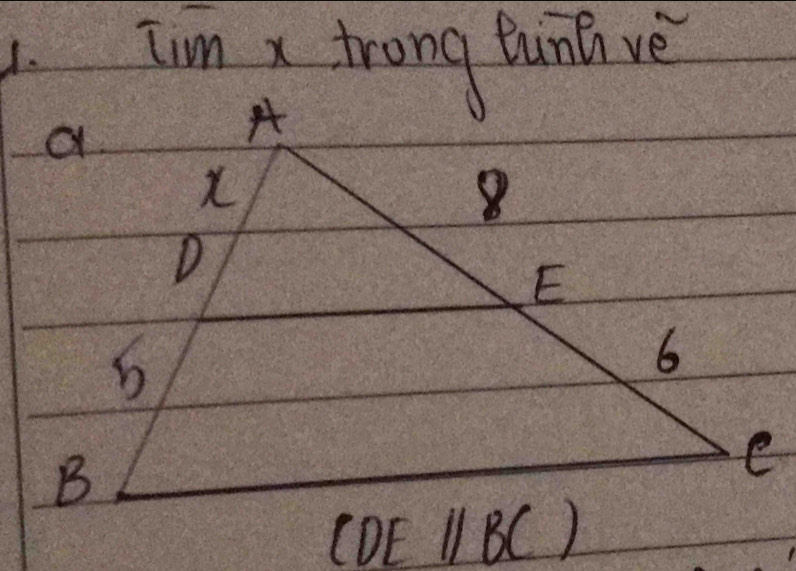 1. Tìm x trong hình vẽ
a. A
x 8
D
E
5 6
B C
(DE // BC)